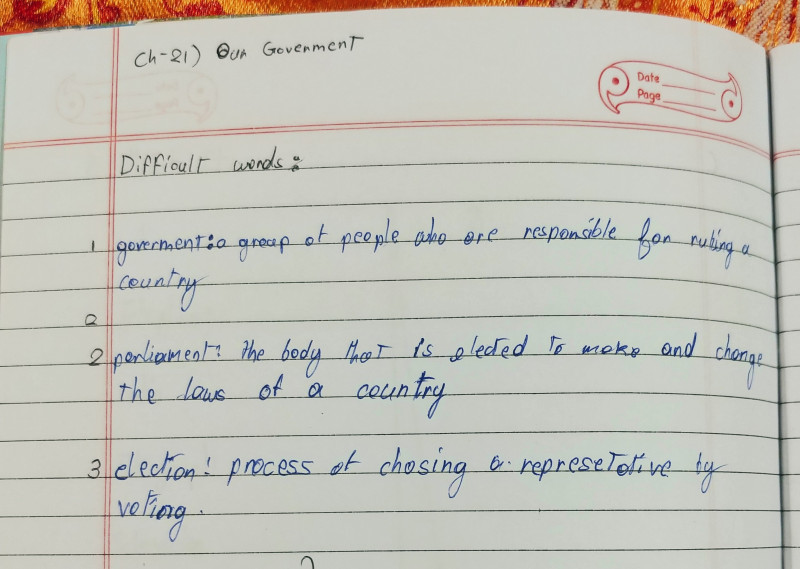 Ch-21) Our Govenment
Date
Page
Difficult words:
1 goverment: a group of people who are responsible for ruling a
country
2
2 parliament: the body that is elected to make and change
the laws of a country
3 election: process of chosing a represetative by
voting.